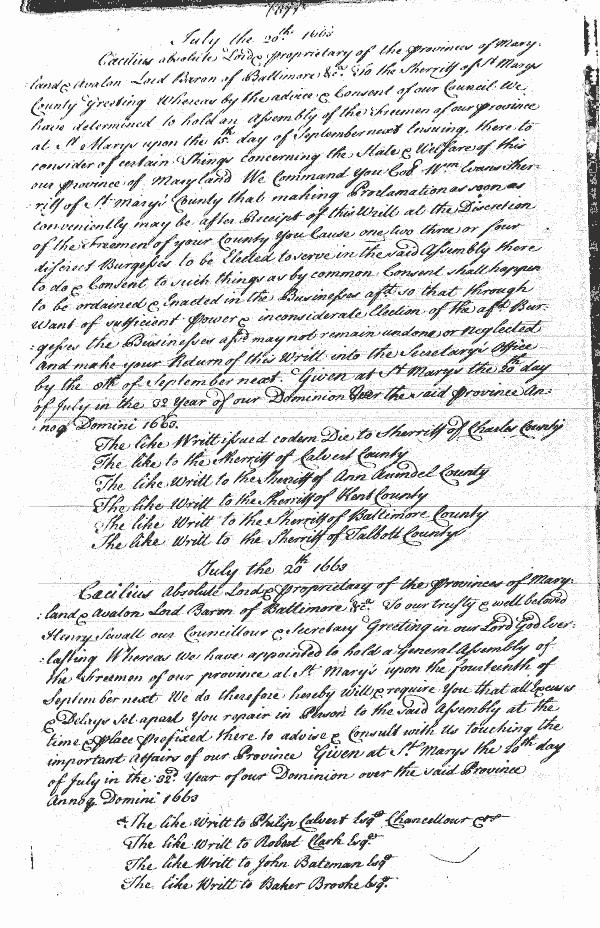 July the 20th 1663
Cæcilius absolute Lord & Proprietary of the Provinces of Mary-
land & Avalon Lord Baron of Baltimore &ca. To the Sherriff of St Marys
County Greeting Whereas by the advice & Consent of our Council We
have determined to hold an Assembly of the Freemen of our Province
at St Marys upon the 15th day of September next Ensuing, there to
consider of certain Things concerning the State & Welfare of this
our Province of Maryland We Command You Wm Evans Sher-
riff of St Mary's County that making Proclamation as soon as
conveniently may be after Receipt of this Writt at the Discretion
of the Freemen of your County You Cause one two three or four
discreet Burgesses to be Elected to serve in the said Assembly there
to do & Consent to such things as by common Consent shall happen
to be ordained & Enacted in the Businesses afd. so that through
Want of sufficient Power & inconsiderate Election of the afd. Bur-
gesses the Businesses afd may not remain undone or neglected
and make your Return of this Writt into the Secretary's Office
by the 8th of September next. Given at St Marys the 20th day
of July in the 32 Year of our Dominion over the said Province An-
noq Domini 1663.
The like Writt issued eodem Die to Sherriff of Charles County
The like to the Sherriff of Calvert County
The like Writt to the Sherriff of Ann Arundel County
The like Writt to the Sherriff of Kent County
The like Writt to the Sherriff of Baltimore County
The like Writt to the Sherriff of Talbott County
July the 20th 1663
Cæcilius Absolute Lord & Proprietary of the Provinces of Mary:
:land & Avalon Lord Baron of Baltimore &ca. To our trusty & well beloved
Henry Sewall our Councillour & Secretary Greeting in our Lord God Ever-
:lasting Whereas We have appointed to hold a General Assembly of
the Freemen of our province at St Mary's upon the fourteenth of
September next We do therefore hereby will & require You that all Excuses
& Delays Set apart You repair in Person to the said Assembly at the
time & Place prefixed there to advise & Consult with us touching the
important Affairs of our Province Given at St Marys the 20th day
of July in the 32d Year of our Dominion over the said Province
Annoq Domini 1663
The like Writt to Philip Calvert Esqr Chancellour &ca
The like Writt to Robert Clark Esqr
The like Writt to John Bateman Esqr
The like Writt to Baker Brooke Esqr.